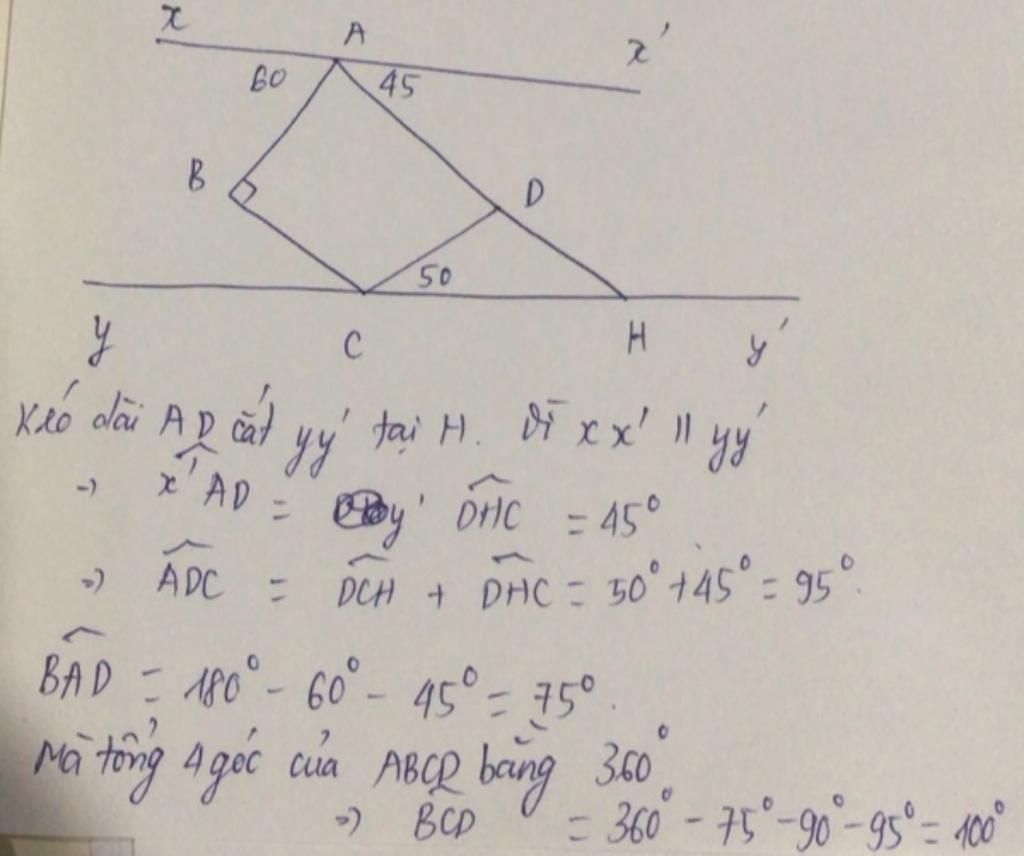 x A x'
60 45
B D
50
y C H y'
Kéo dài AD cắt yy' tại H. Vì xx' // yy'
→ x'AD = DHC = 45°
⇒ ADC = DCH + DHC = 50° + 45° = 95°.
BAD = 180° - 60° - 45° = 75°.
Mà tổng 4 góc của ABCD bằng 360°
⇒ BCD = 360° - 75° - 90° - 95° = 100°